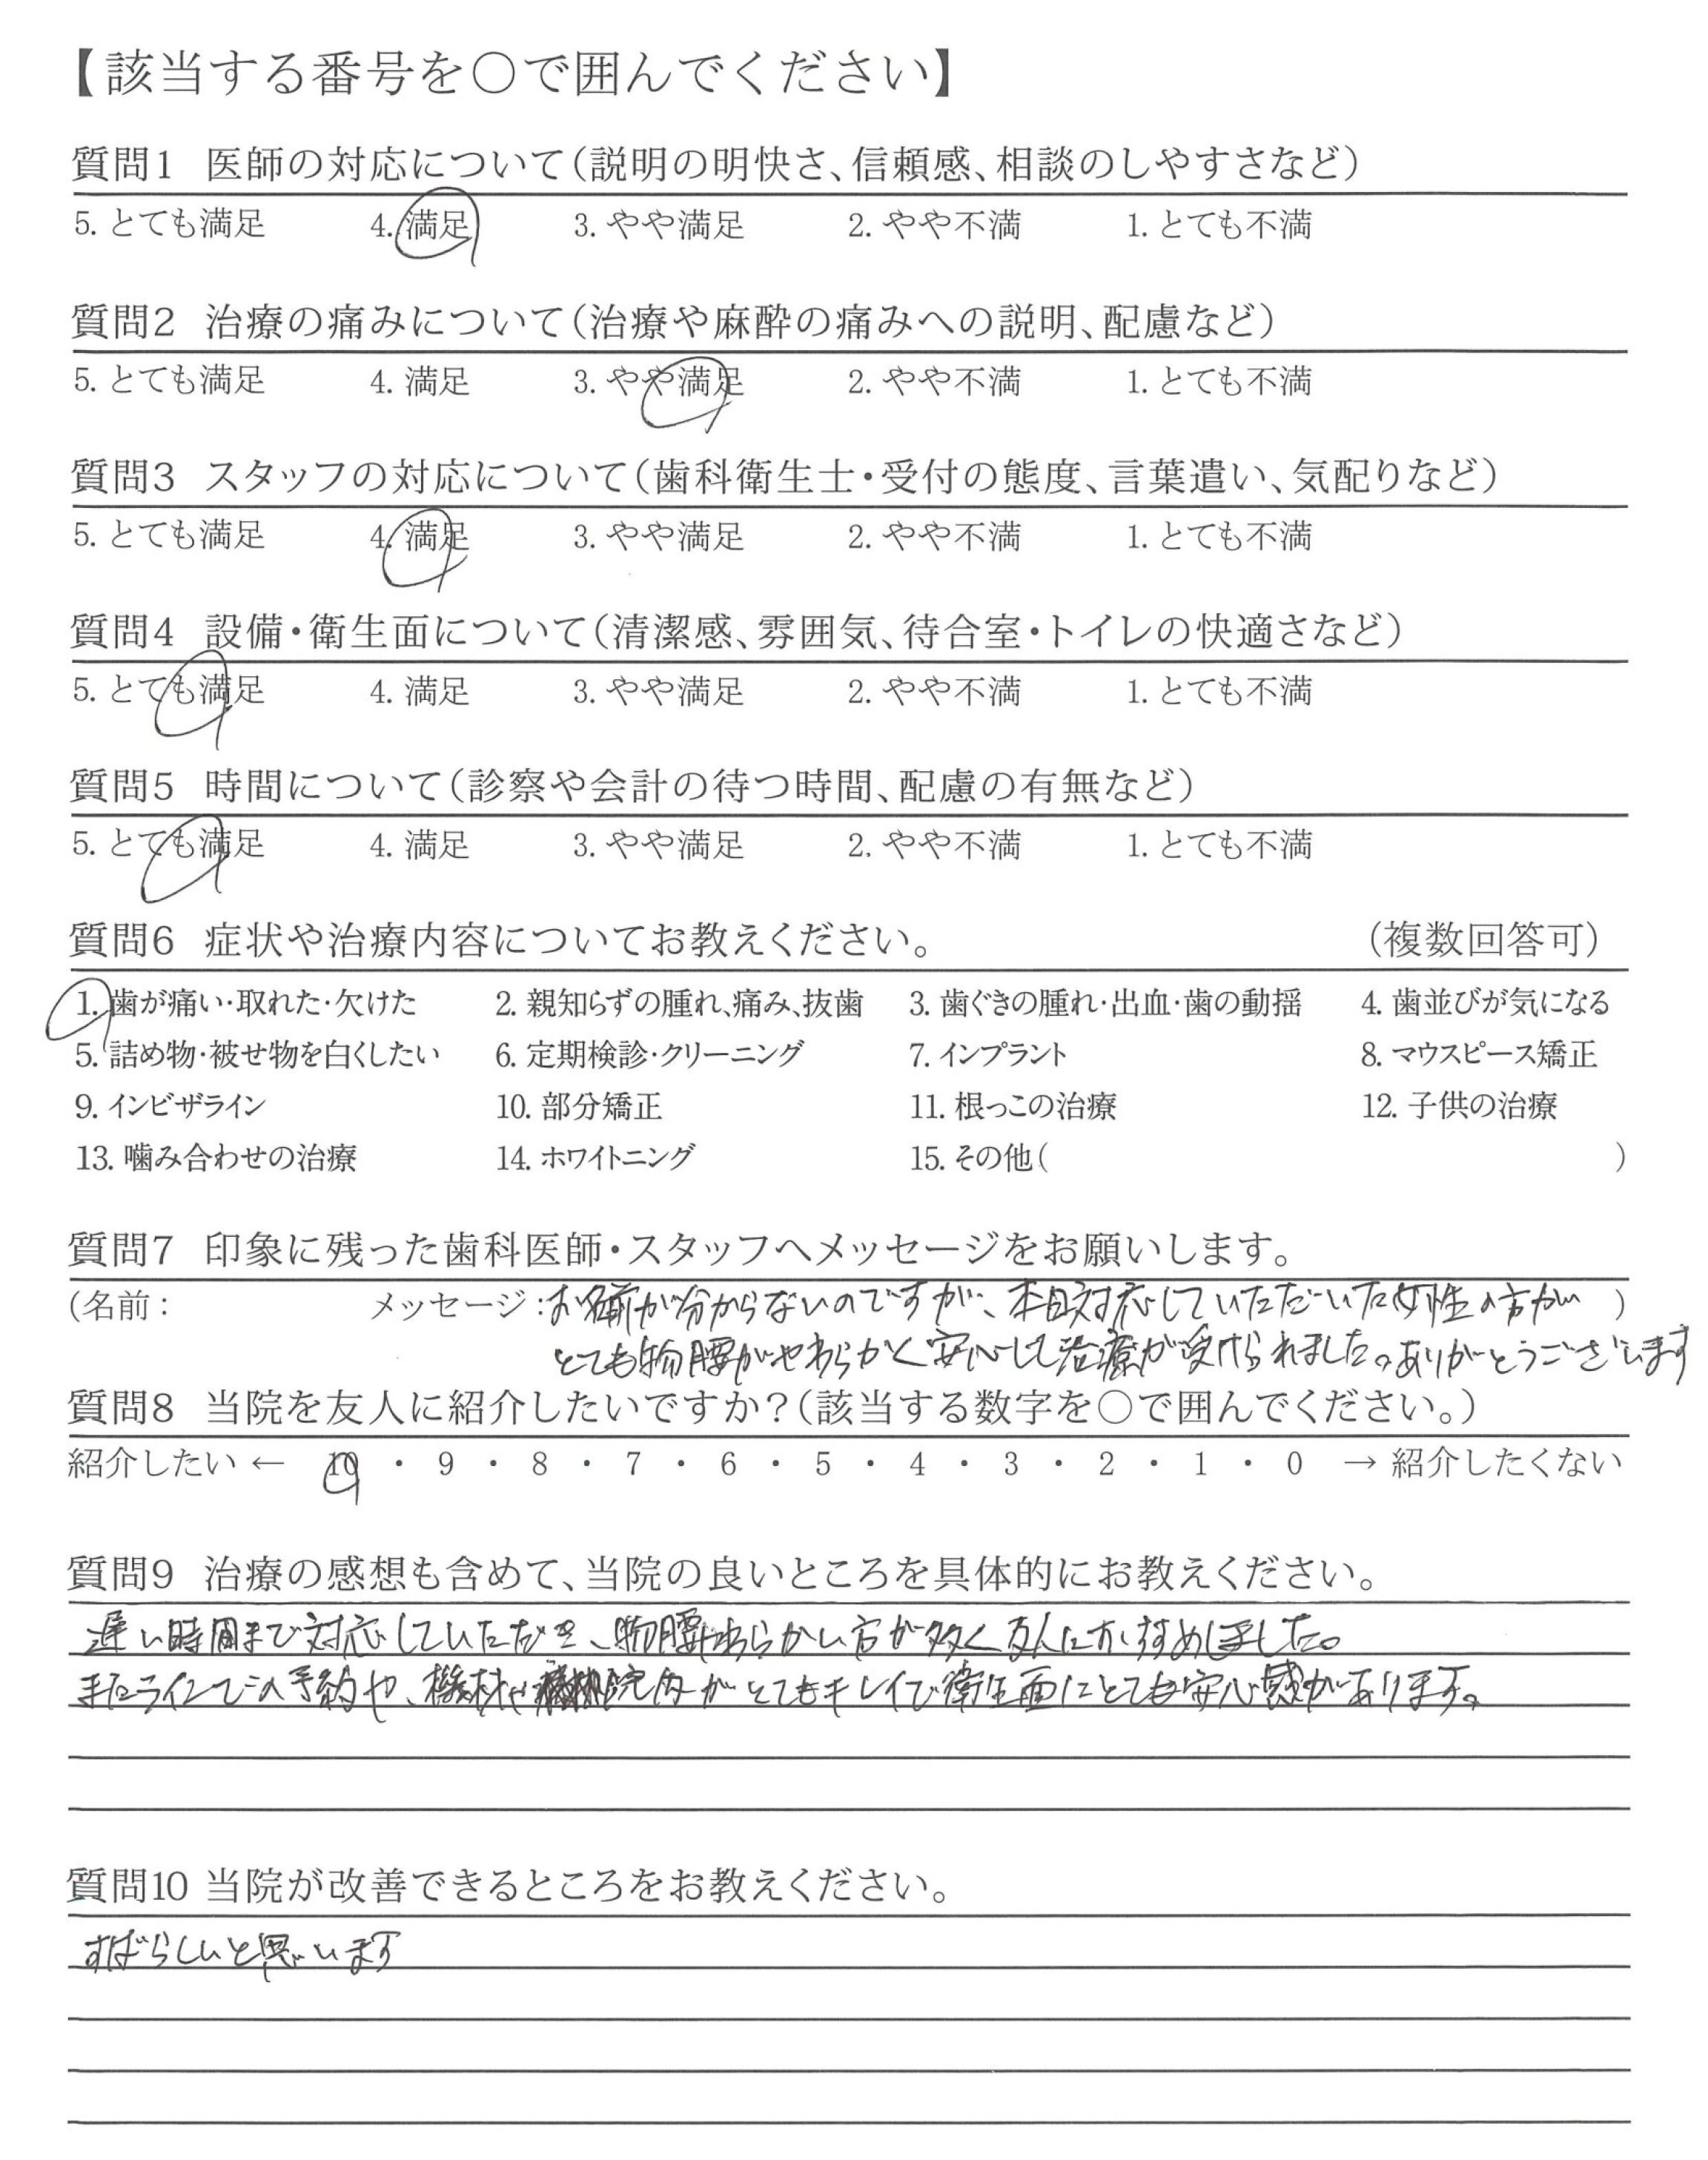 【該当する番号を○で囲んでください】
質問1 医師の対応について(説明の明快さ、信頼感、相談のしやすさなど)
5. とても満足 4. 満足 3. やや満足 2. やや不満 1. とても不満
質問2 治療の痛みについて(治療や麻酔の痛みへの説明、配慮など)
5. とても満足 4. 満足 3. やや満足 2. やや不満 1. とても不満
質問3 スタッフの対応について(歯科衛生士・受付の態度、言葉遣い、気配りなど)
5. とても満足 4. 満足 3. やや満足 2. やや不満 1. とても不満
質問4 設備・衛生面について(清潔感、雰囲気、待合室・トイレの快適さなど)
5. とても満足 4. 満足 3. やや満足 2. やや不満 1. とても不満
質問5 時間について(診察や会計の待つ時間、配慮の有無など)
5. とても満足 4. 満足 3. やや満足 2. やや不満 1. とても不満
質問6 症状や治療内容についてお教えください。 (複数回答可)
1. 歯が痛い・取れた・欠けた 2. 親知らずの腫れ、痛み、抜歯 3. 歯ぐきの腫れ・出血・歯の動揺 4. 歯並びが気になる
5. 詰め物・被せ物を白くしたい 6. 定期検診・クリーニング 7. インプラント 8. マウスピース矯正
9. インビザライン 10. 部分矯正 11. 根っこの治療 12. 子供の治療
13. 噛み合わせの治療 14. ホワイトニング 15. その他( )
質問7 印象に残った歯科医師・スタッフへメッセージをお願いします。
(名前: メッセージ:お名前が分からないのですが、本日対応していただいた女性の方が )
とても物腰がやわらかく安心して治療が受けられました。ありがとうございます
質問8 当院を友人に紹介したいですか?(該当する数字を○で囲んでください。)
紹介したい ← 10 ・ 9 ・ 8 ・ 7 ・ 6 ・ 5 ・ 4 ・ 3 ・ 2 ・ 1 ・ 0 → 紹介したくない
質問9 治療の感想も含めて、当院の良いところを具体的にお教えください。
遅い時間まで対応していただき、物腰やわらかい方が多く友人におすすめしました。
またラインでの予約や、機材や院内がとてもキレイで衛生面にとても安心感があります。
質問10 当院が改善できるところをお教えください。
すばらしいと思います